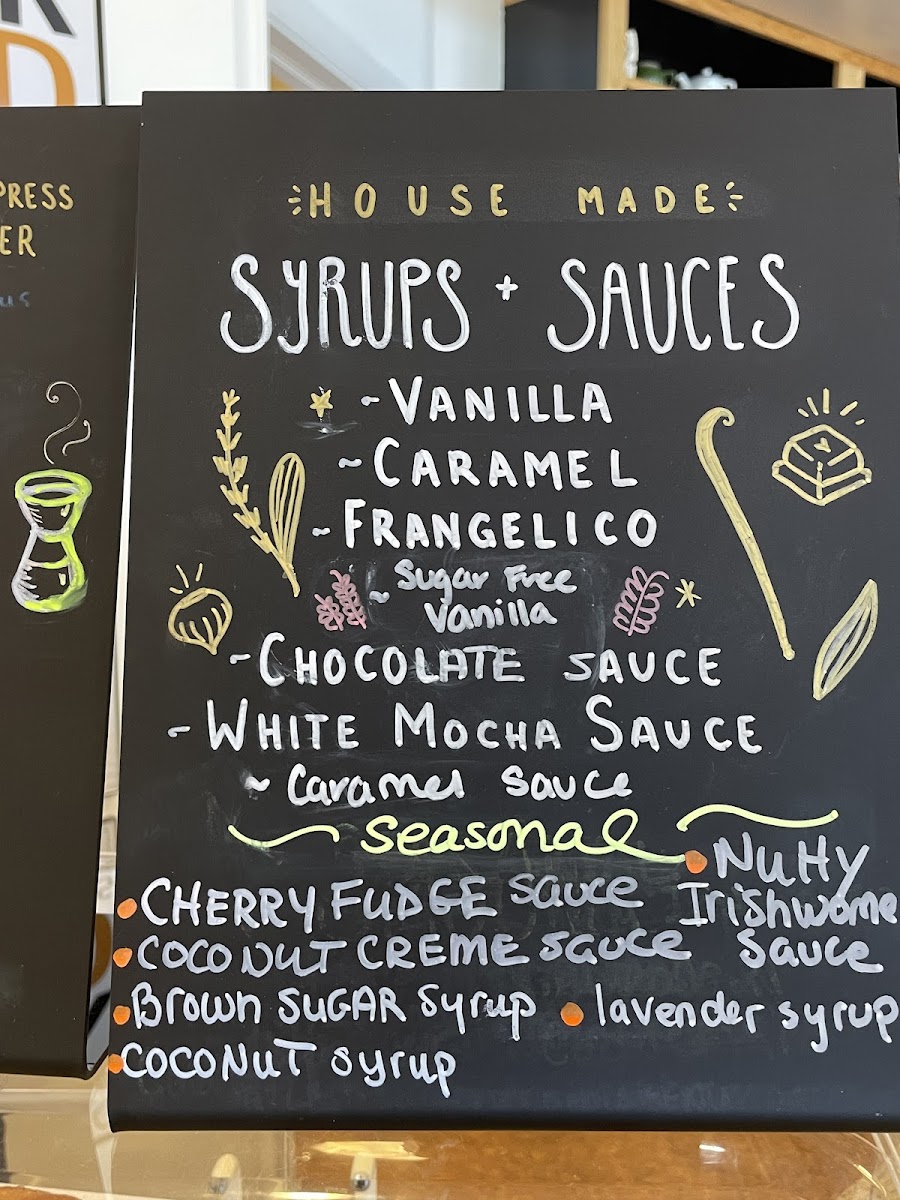 PRESS
ER
HOUSE MADE
SYRUPS + SAUCES
- VANILLA
~ CARAMEL
~ FRANGELICO
~ Sugar Free
Vanilla
- CHOCOLATE SAUCE
- WHITE MOCHA SAUCE
~ Caramel Sauce
seasonal
• CHERRY FUDGE sauce
• COCONUT CREME sauce
• Brown SUGAR Syrup
• COCONUT syrup
• Nutty
Irishwoma
Sauce
• lavender syrup